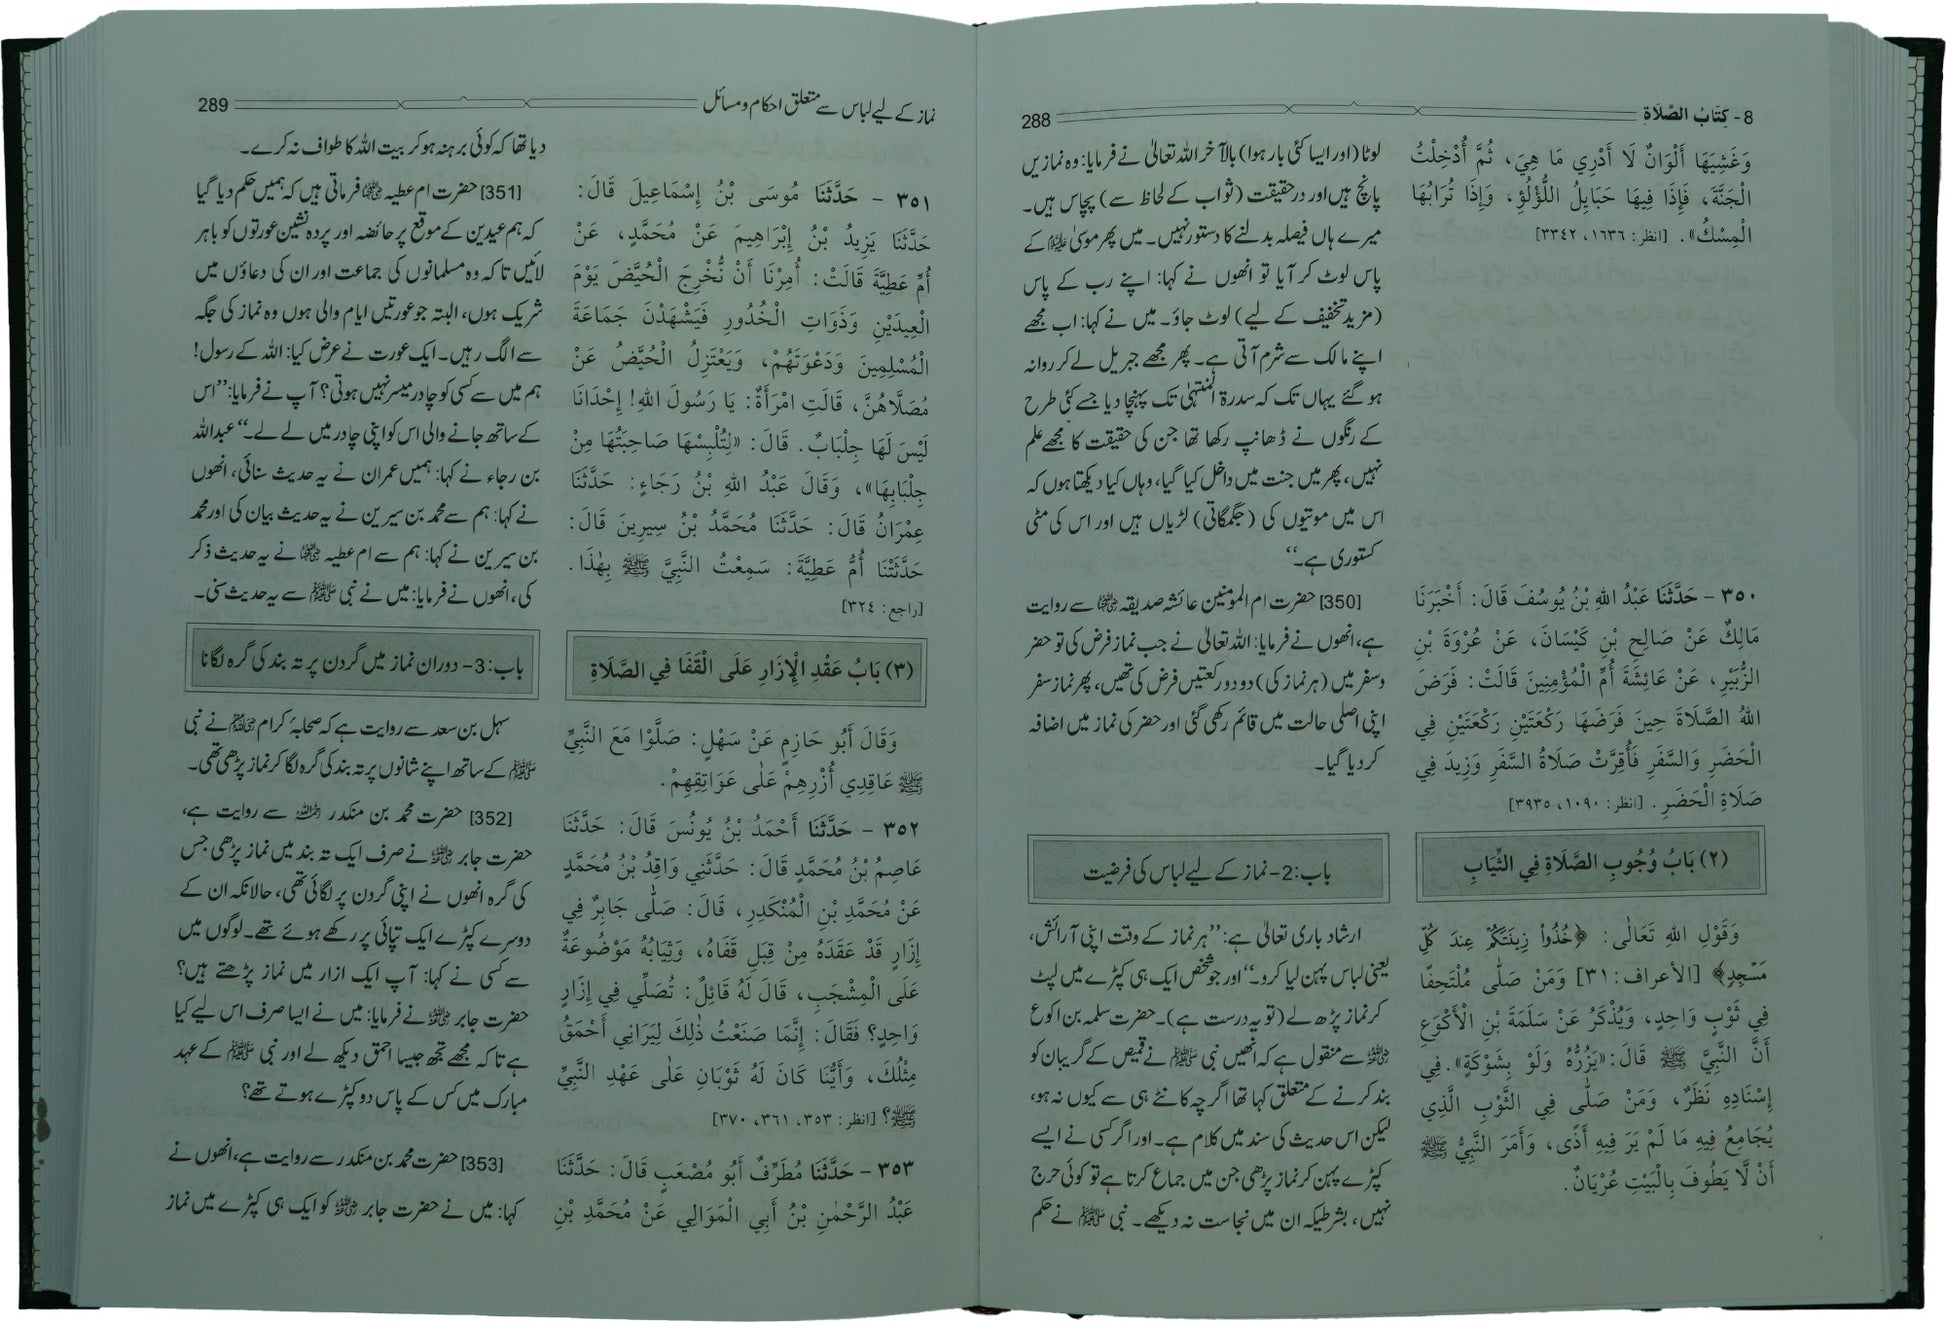 8- كِتَابُ الصَّلَاةِ 288
وَغَشِيَهَا أَلْوَانٌ لَا أَدْرِي مَا هِيَ، ثُمَّ أُدْخِلْتُ
الْجَنَّةَ، فَإِذَا فِيهَا حَبَايِلُ اللُّؤْلُؤِ، وَإِذَا تُرَابُهَا
الْمِسْكُ». [انظر: ١٦٣٦، ٣٣٤٢]
٣٥٠ - حَدَّثَنَا عَبْدُ اللهِ بْنُ يُوسُفَ قَالَ: أَخْبَرَنَا
مَالِكٌ عَنْ صَالِحِ بْنِ كَيْسَانَ، عَنْ عُرْوَةَ بْنِ
الزُّبَيْرِ، عَنْ عَائِشَةَ أُمِّ الْمُؤْمِنِينَ قَالَتْ: فَرَضَ
اللهُ الصَّلَاةَ حِينَ فَرَضَهَا رَكْعَتَيْنِ رَكْعَتَيْنِ فِي
الْحَضَرِ وَالسَّفَرِ فَأُقِرَّتْ صَلَاةُ السَّفَرِ وَزِيدَ فِي
صَلَاةِ الْحَضَرِ. [انظر: ١٠٩٠، ٣٩٣٥]
(٢) بَابُ وُجُوبِ الصَّلَاةِ فِي الثِّيَابِ
وَقَوْلِ اللهِ تَعَالٰى: ﴿خُذُواْ زِينَتَكُمْ عِندَ كُلِّ
مَسْجِدٍ﴾ [الأعراف: ٣١] وَمَنْ صَلّٰى مُلْتَحِفًا
فِي ثَوْبٍ وَاحِدٍ، وَيُذْكَرُ عَنْ سَلَمَةَ بْنِ الْأَكْوَعِ
أَنَّ النَّبِيَّ ﷺ قَالَ: «يَزُرُّهُ وَلَوْ بِشَوْكَةٍ». فِي
إِسْنَادِهِ نَظَرٌ، وَمَنْ صَلّٰى فِي الثَّوْبِ الَّذِي
يُجَامِعُ فِيهِ مَا لَمْ يَرَ فِيهِ أَذًى، وَأَمَرَ النَّبِيُّ ﷺ
أَنْ لَّا يَطُوفَ بِالْبَيْتِ عُرْيَانٌ.
لوٹا (اور ایسا کئی بار ہوا) بالآخر اللہ تعالیٰ نے فرمایا: وہ نمازیں
پانچ ہیں اور درحقیقت (ثواب کے لحاظ سے) پچاس ہیں۔
میرے ہاں فیصلہ بدلنے کا دستور نہیں۔ میں پھر موسیٰ علیہ السلام کے
پاس لوٹ کر آیا تو انھوں نے کہا: اپنے رب کے پاس
(مزید تخفیف کے لیے) لوٹ جاؤ۔ میں نے کہا: اب مجھے
اپنے مالک سے شرم آتی ہے۔ پھر مجھے جبریل لے کر روانہ
ہو گئے یہاں تک کہ سدرۃ المنتہیٰ تک پہنچا دیا جسے کئی طرح
کے رنگوں نے ڈھانپ رکھا تھا جن کی حقیقت کا مجھے علم
نہیں، پھر میں جنت میں داخل کیا گیا، وہاں کیا دیکھتا ہوں کہ
اس میں موتیوں کی (جگمگاتی) لڑیاں ہیں اور اس کی مٹی
کستوری ہے۔‘‘
[350] حضرت ام المومنین عائشہ صدیقہ رضی اللہ عنہا سے روایت
ہے، انھوں نے فرمایا: اللہ تعالیٰ نے جب نماز فرض کی تو حضر
و سفر میں (ہر نماز کی) دو دو رکعتیں فرض کی تھیں، پھر نماز سفر
اپنی اصلی حالت میں قائم رکھی گئی اور حضر کی نماز میں اضافہ
کر دیا گیا۔
باب:2- نماز کے لیے لباس کی فرضیت
ارشاد باری تعالیٰ ہے: ’’ہر نماز کے وقت اپنی آرائش،
یعنی لباس پہن لیا کرو۔‘‘ اور جو شخص ایک ہی کپڑے میں لپٹ
کر نماز پڑھ لے (تو یہ درست ہے)۔ حضرت سلمہ بن اکوع
رضی اللہ عنہ سے منقول ہے کہ انھیں نبی ﷺ نے قمیص کے گریبان کو
بند کرنے کے متعلق کہا تھا اگرچہ کانٹے ہی سے کیوں نہ ہو،
لیکن اس حدیث کی سند میں کلام ہے۔ اور اگر کسی نے ایسے
کپڑے پہن کر نماز پڑھی جن میں جماع کرتا ہے تو کوئی حرج
نہیں، بشرطیکہ ان میں نجاست نہ دیکھے۔ نبی ﷺ نے حکم
نماز کے لیے لباس سے متعلق احکام و مسائل 289
٣٥١ - حَدَّثَنَا مُوسَى بْنُ إِسْمَاعِيلَ قَالَ:
حَدَّثَنَا يَزِيدُ بْنُ إِبْرَاهِيمَ عَنْ مُحَمَّدٍ، عَنْ
أُمِّ عَطِيَّةَ قَالَتْ: أُمِرْنَا أَنْ نُّخْرِجَ الْحُيَّضَ يَوْمَ
الْعِيدَيْنِ وَذَوَاتِ الْخُدُورِ فَيَشْهَدْنَ جَمَاعَةَ
الْمُسْلِمِينَ وَدَعْوَتَهُمْ، وَيَعْتَزِلُ الْحُيَّضُ عَنْ
مُصَلَّاهُنَّ، قَالَتِ امْرَأَةٌ: يَا رَسُولَ اللهِ! إِحْدَانَا
لَيْسَ لَهَا جِلْبَابٌ. قَالَ: «لِتُلْبِسْهَا صَاحِبَتُهَا مِنْ
جِلْبَابِهَا»، وَقَالَ عَبْدُ اللهِ بْنُ رَجَاءٍ: حَدَّثَنَا
عِمْرَانُ قَالَ: حَدَّثَنَا مُحَمَّدُ بْنُ سِيرِينَ قَالَ:
حَدَّثَتْنَا أُمُّ عَطِيَّةَ: سَمِعْتُ النَّبِيَّ ﷺ بِهٰذَا.
[راجع: ٣٢٤]
(٣) بَابُ عَقْدِ الْإِزَارِ عَلَى الْقَفَا فِي الصَّلَاةِ
وَقَالَ أَبُو حَازِمٍ عَنْ سَهْلٍ: صَلَّوْا مَعَ النَّبِيِّ
ﷺ عَاقِدِي أُزْرِهِمْ عَلٰى عَوَاتِقِهِمْ.
٣٥٢ - حَدَّثَنَا أَحْمَدُ بْنُ يُونُسَ قَالَ: حَدَّثَنَا
عَاصِمُ بْنُ مُحَمَّدٍ قَالَ: حَدَّثَنِي وَاقِدُ بْنُ مُحَمَّدٍ
عَنْ مُحَمَّدِ بْنِ الْمُنْكَدِرِ، قَالَ: صَلّٰى جَابِرٌ فِي
إِزَارٍ قَدْ عَقَدَهُ مِنْ قِبَلِ قَفَاهُ، وَثِيَابُهُ مَوْضُوعَةٌ
عَلَى الْمِشْجَبِ، قَالَ لَهُ قَائِلٌ: تُصَلِّي فِي إِزَارٍ
وَاحِدٍ؟ فَقَالَ: إِنَّمَا صَنَعْتُ ذٰلِكَ لِيَرَانِي أَحْمَقُ
مِثْلُكَ، وَأَيُّنَا كَانَ لَهُ ثَوْبَانِ عَلٰى عَهْدِ النَّبِيِّ
ﷺ؟ [انظر: ٣٥٣، ٣٦١، ٣٧٠]
٣٥٣ - حَدَّثَنَا مُطَرِّفٌ أَبُو مُصْعَبٍ قَالَ: حَدَّثَنَا
عَبْدُ الرَّحْمٰنِ بْنُ أَبِي الْمَوَالِي عَنْ مُحَمَّدِ بْنِ
دیا تھا کہ کوئی برہنہ ہو کر بیت اللہ کا طواف نہ کرے۔
[351] حضرت ام عطیہ رضی اللہ عنہا فرماتی ہیں کہ ہمیں حکم دیا گیا
کہ ہم عیدین کے موقع پر حائضہ اور پردہ نشین عورتوں کو باہر
لائیں تاکہ وہ مسلمانوں کی جماعت اور ان کی دعاؤں میں
شریک ہوں، البتہ جو عورتیں ایام والی ہوں وہ نماز کی جگہ
سے الگ رہیں۔ ایک عورت نے عرض کیا: اللہ کے رسول!
ہم میں سے کسی کو چادر میسر نہیں ہوتی؟ آپ نے فرمایا: ’’اس
کے ساتھ جانے والی اس کو اپنی چادر میں لے لے۔‘‘ عبداللہ
بن رجاء نے کہا: ہمیں عمران نے یہ حدیث سنائی، انھوں
نے کہا: ہم سے محمد بن سیرین نے یہ حدیث بیان کی اور محمد
بن سیرین نے کہا: ہم سے ام عطیہ رضی اللہ عنہا نے یہ حدیث ذکر
کی، انھوں نے فرمایا: میں نے نبی ﷺ سے یہ حدیث سنی۔
باب:3- دوران نماز میں گردن پر تہ بند کی گرہ لگانا
سہل بن سعد سے روایت ہے کہ صحابۂ کرام رضی اللہ عنہم نے نبی
ﷺ کے ساتھ اپنے شانوں پر تہ بند کی گرہ لگا کر نماز پڑھی تھی۔
[352] حضرت محمد بن منکدر رحمہ اللہ سے روایت ہے،
حضرت جابر رضی اللہ عنہ نے صرف ایک تہ بند میں نماز پڑھی جس
کی گرہ انھوں نے اپنی گردن پر لگائی تھی، حالانکہ ان کے
دوسرے کپڑے ایک تپائی پر رکھے ہوئے تھے۔ لوگوں میں
سے کسی نے کہا: آپ ایک ازار میں نماز پڑھتے ہیں؟
حضرت جابر رضی اللہ عنہ نے فرمایا: میں نے ایسا صرف اس لیے کیا
ہے تاکہ مجھے تجھ جیسا احمق دیکھ لے اور نبی ﷺ کے عہد
مبارک میں کس کے پاس دو کپڑے ہوتے تھے؟
[353] حضرت محمد بن منکدر سے روایت ہے، انھوں نے
کہا: میں نے حضرت جابر رضی اللہ عنہ کو ایک ہی کپڑے میں نماز